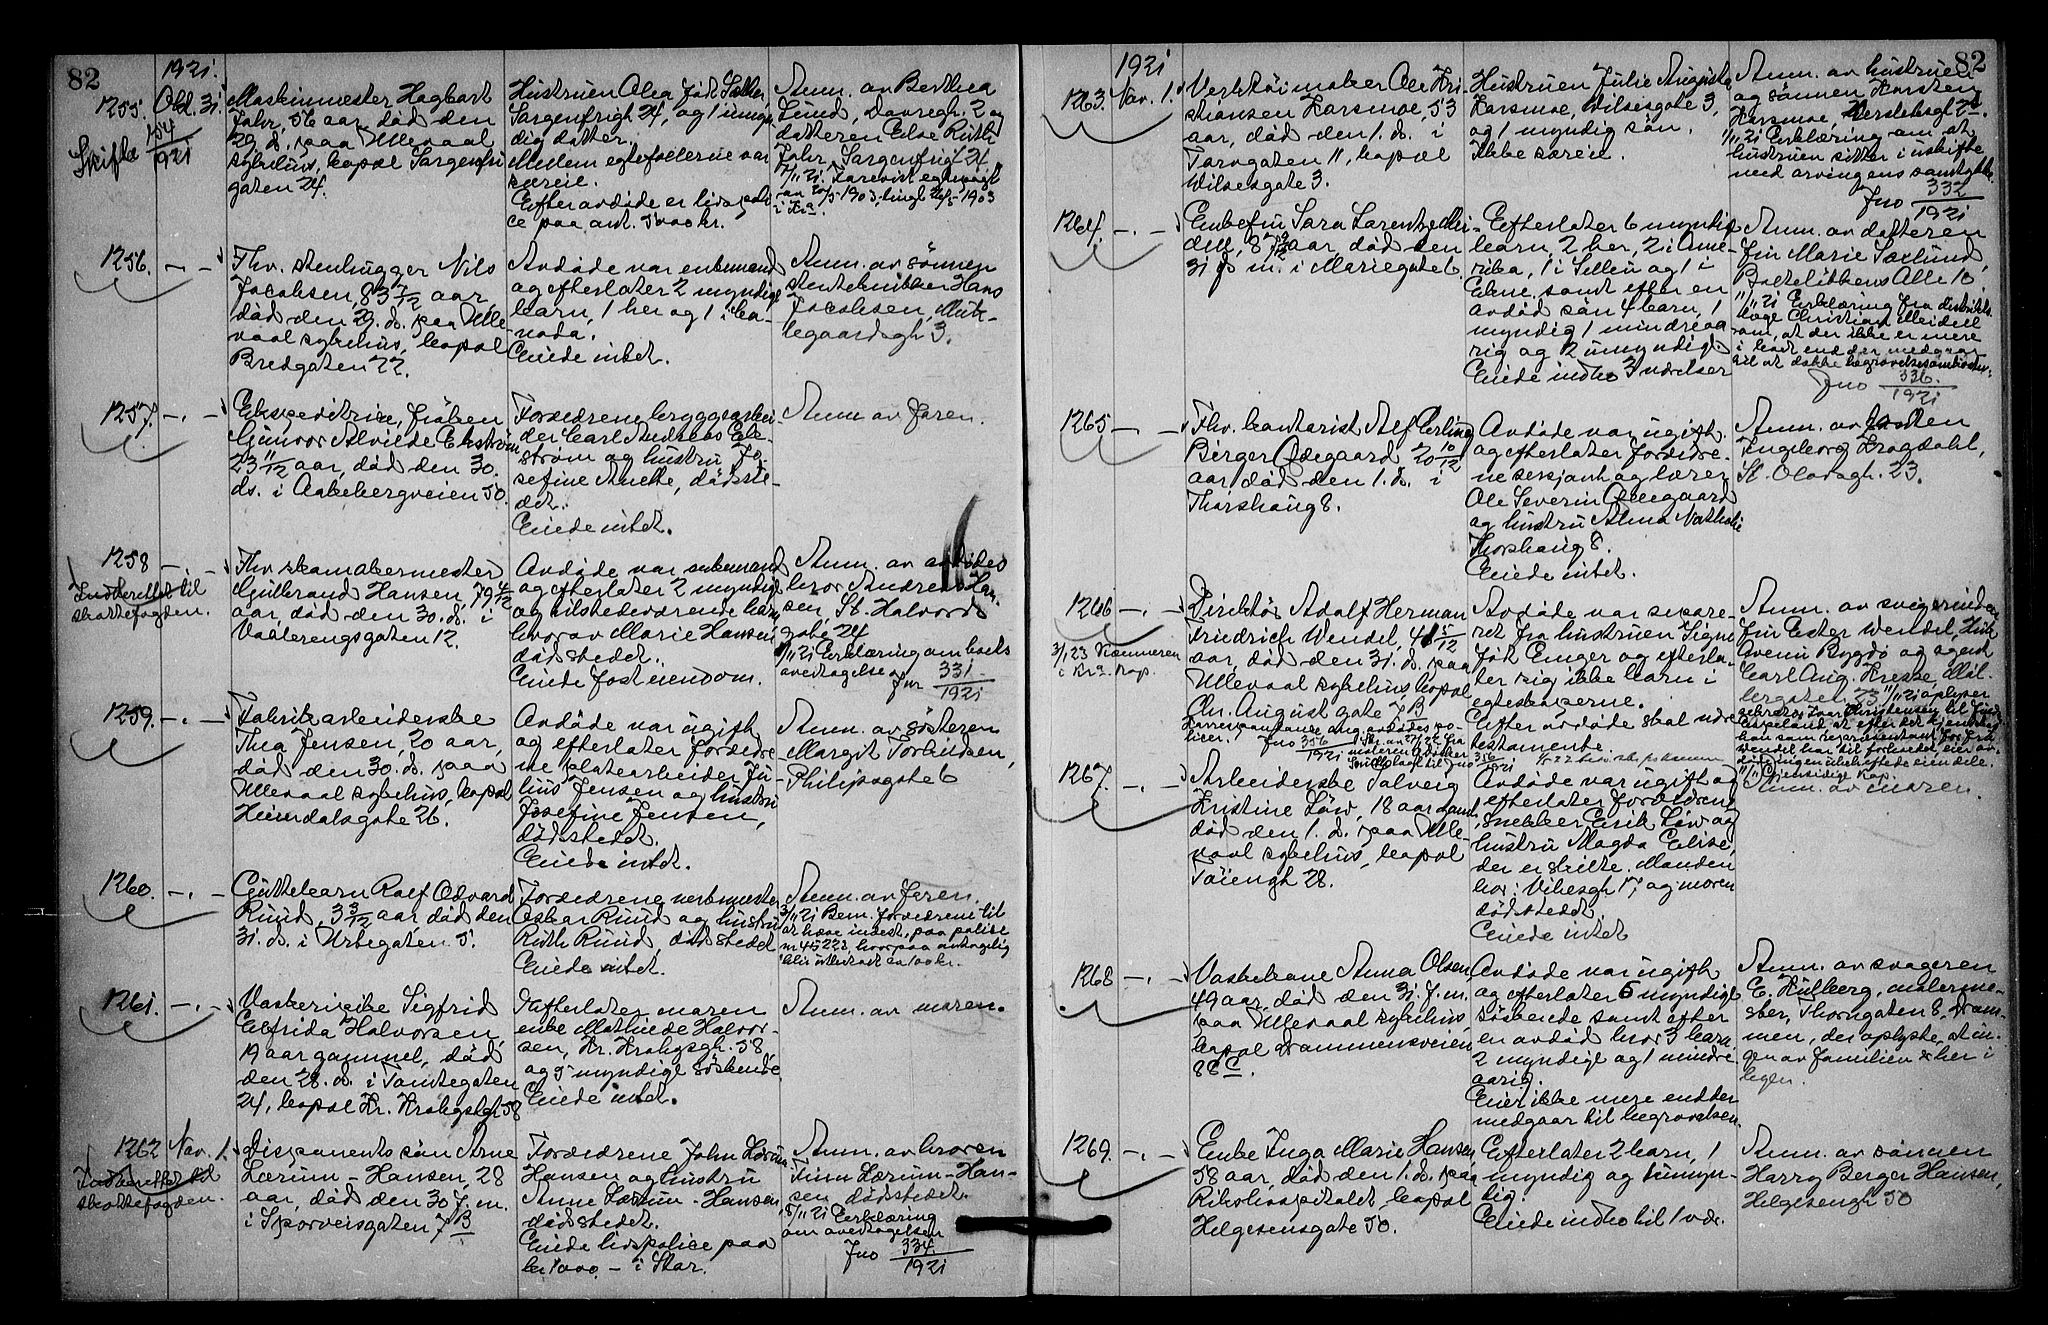 82
1921.
1255. Okt. 31
Skifte 154/1921
Maskinmester Hagbart
Jahr, 56 aar, død den
29. ds. paa Ullevaal
sykehus, bopæl Sorgenfri
gaten 24.
Hustruen Olea født
Sorgenfrigt 24, og 1 umyn
dig datter.
Mellem egtefællerne var
særeie.
Efter avdøde er livspoli
ce paa ant. 5000 kr.
Anm. av Berthea
Lund, 2 og
datteren Else Ruth
Jahr, Sorgenfrigt 24
egtepagt
av 20/5-1903, tingl. 1903
i Kra.
1256. —.—
Fhv. stenhugger Nils
Jacobsen, 83 7/12 aar,
død den 29. ds. paa Ulle-
vaal sykehus, bopæl
Bredgaten 22.
Avdøde var enkemand
og efterlater 2 myndige
barn, 1 her og 1 i Ca-
nada.
Eiede intet.
Anm. av sønnen
stentrikker Hans
Jacobsen, Munk-
egaardsgt. 3.
1257. —.—
Ekspeditrice, frøken
Gunvor Alvilde Ekstrøm
23 11/12 aar, død den 30.
ds. i Aakebergveien 50.
Forældrene bryggearbei
der Carl Andreas Ek-
strøm og hustru Jo-
sefine Anette, dødste-
det.
Eiede intet.
Anm. av faren.
1258 —.—
Indberettet til
skattefogden.
Fhv. skomakermester
Gulbrand Hansen, 79 4/12
aar, død den 30. ds. i
Vaalerengsgaten 12.
Avdøde var enkemand
og efterlater 2 myndige
og tilstedeværende barn
hvorav Marie Hansen,
dødsstedet.
Eiede fast eiendom.
Anm. av avdødes
bror Andreas Han-
sen, St. Halvords
gate 24
1/11 21 Erklæring om boets
overtagelse
Jnr 331/1921
1259. —.—
Fabrikarbeiderske
Thea Jensen, 20 aar,
død den 30. ds. paa
Ullevaal sykehus, bopæl
Heimdalsgate 26.
Avdøde var ugift
og efterlater foræld-
rene platearbeider Ju
lius Jensen og hustru
Josefine Jensen,
dødsstedet.
Eiede intet.
Anm. av søsteren
Margit Torkildsen,
Philipsgate 6
1260. —.—
Guttebarn Rolf Edvard
Ruud, 3 3/12 aar død den
31. ds. i Urtegaten 5.
Forældrene verkmester
Oskar Ruud og hustru
Ruth Ruud dødsstedet
Eiede intet.
Anm. av faren.
3/11 21 Bem. forældrene til
at hæve indest. paa polise
nr 45223, hvorpaa antagelig
blir utbetalt ca 100 kr.
1261. —.—
Vaskeripike Sigfrid
Elfrida Halvorsen,
19 aar gammel, død
den 28. ds. i Tomtegaten
24, bopæl Kr. Krohgsgt 58
Efterlater moren
enke Mathilde Halvor-
sen, Kr. Krohgsgt. 58,
og 5 myndige søskende.
Eiede intet.
Anm. av moren.
1262 Nov. 1.
Indberettet til
skattefogden.
Disponents søn Arne
Lærum-Hansen, 28
aar, død den 30 f. m.
i Sporveisgaten 7 B
Forældrene John Lærum
Hansen og hustru
Anne Lærum-Hansen,
dødsstedet.
Eiede livspolice paa
kr 1000.- i Star.
Anm. av broren
Finn Lærum-Han-
sen, dødsstedet.
5/11 21 Erklæring
om overtagelsen
Jno 334/1921
82
1921
1263. Nov. 1.
Verktøimaker Ole Kri
stiansen Korsmoe, 53
aar, død den 1. ds. i
Torvgaten 11, bopæl
Wilsesgate 3.
Hustruen Julie Auguste
Korsmoe, Wilsesgate 3,
og 1 myndig søn.
Ikke særeie.
Anm. av hustruen
og sønnen Karsten
Korsmoe,
1/11 21 Erklæring om at
hustruen sitter i uskifte
med arvingens samtykke.
Jno 332/1921
1264. —.—
Enkefru Sara Lorentze Mei
dell, 87 aar, død den
31 f. m. i Mariegate 6
Efterlater 6 myndige
barn, 2 her, 2 i Ame-
rika, 1 i Selleu og 1 i
Ekne, samt efter en
avdød søn 4 barn, 1
myndig 1 mindreaa
rig og 2 umyndige
Eiede indbo 3 værelser
Anm. av datteren
fru Marie Soelund,
Balteløkkens Alle 10.
11/11 21 Erklæring fra distrikts-
læge Christian Meidell
om, at der ikke er mere
i boet end der medgaar
til at dække begravelsesomkostn.
Jno 336./1921
1265 —.—
Fhv. kontorist Alf Erling
Birger Ødegaard, 20 10/12
aar, død den 1. ds. i
Thorshaug 8.
Avdøde var ugift
og efterlater forældre-
ne sersjant og lærer
Ole Severin Ødegaard
og hustru Alma Nathalie
Thorshaug 8.
Eiede intet.
Anm. av tanten
Ingeborg Krogdahl,
St. Olavsgt. 23.
1266 —.—
3/1 23 Kæmneren
i Kra. kap.
Direktør Adolf Herman
Friedrich Wendel, 41 5/12
aar, død den 31. ds. paa
Ullevaal sykehus, bopæl
Chr. August gate 7 B
Jno 356/1921
Avdøde var separe-
ret fra hustruen Signe
født Enger og efterla-
ter sig ikke barn i
egteskaperne.
Efter avdøde skal være
testamente.
Anm. av svigerinden
fru Ester Wendel,
avenu Bygdø og agent
Carl Aug. Kresse Møl-
lergaten 23 11/11 21 oplyser
1267. —.—
Arbeiderske Solveig
Kristine Løw, 18 aar gaml.
død den 1. ds. paa Ulle-
vaal sykehus, bopæl
Tøiengt 28.
Avdøde var ugift og
efterlater forældrene
snekker Erik Løw og
hustru Magda Elise,
der er skilte. Manden
bor: Vibesgt 17, og moren
dødsstedet.
Eiede intet
Anm. av moren.
1268 —.—
Vaskekone Anna Olsen
49 aar, død den 31. f. m.
paa Ullevaal sykehus,
bopæl Drammensveien
88 C.
Avdøde var ugift
og efterlater 6 myndige
søskende samt efter
en avdød bror 3 barn
2 myndige og 1 mindre
aarig.
Eier ikke mere end der
medgaar til begravelsen.
Anm. av svogeren
E. Hulberg, malerme-
ster, Thorngaten 8, Dram-
men, der oplyste, at in-
gen av familien er her i
byen.
1269. —.—
Enke Inga Marie Hansen
58 aar, død den 1. ds. paa
Rikshospitalet, bopæl
Helgesensgate 50.
Efterlater 2 barn, 1
myndig og 1 umyn-
dig.
Eiede indbo til 1 vær.
Anm. av sønnen
Harry Berger Hansen,
Helgesengt 50